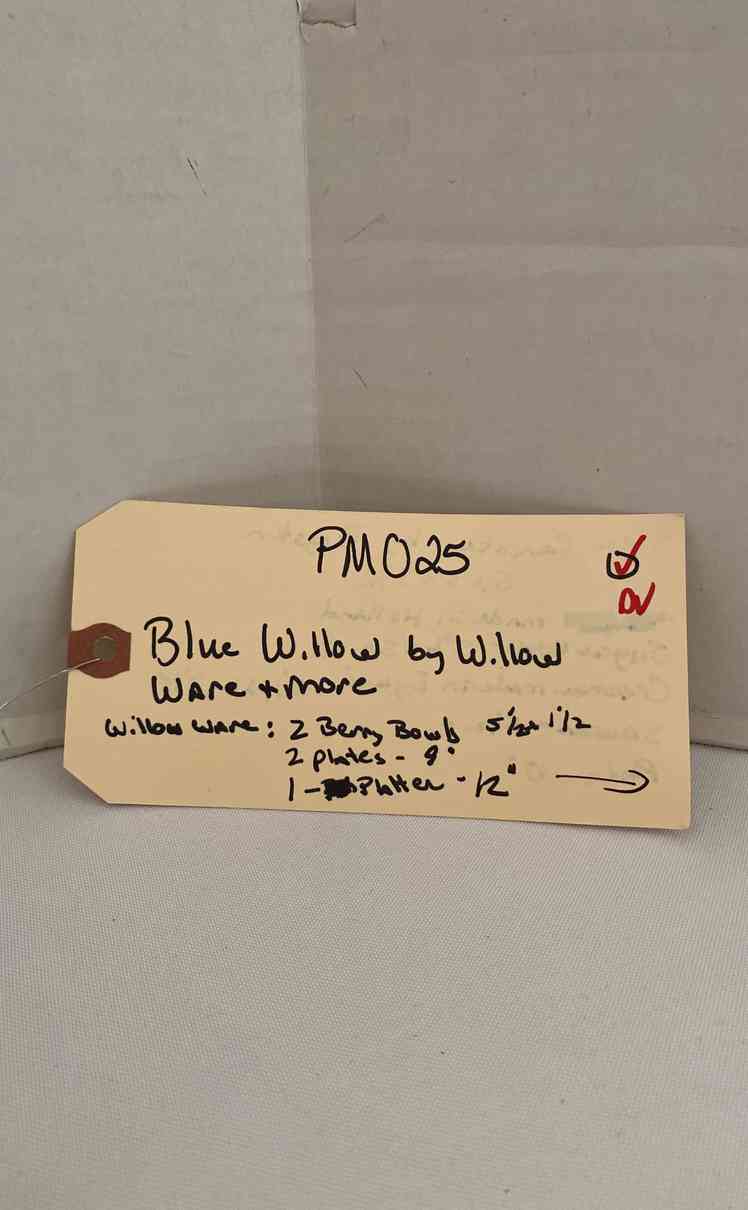 PM025
DV
Blue Willow by Willow
Ware + more
Willow Ware: 2 Berry Bowls 5 1/2 x 1 1/2
2 plates - 9"
1 - Platter - 12"